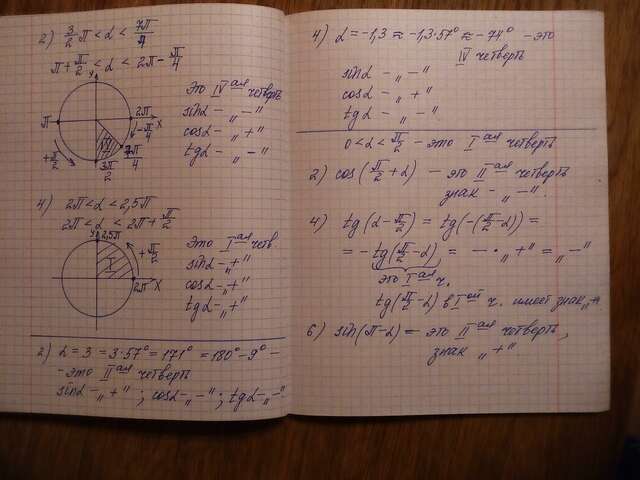 2) 3/2 π < α < 7π/4
π + π/2 < α < 2π - π/4
y
Это IV ая четверть
sinα - „ - "
cosα - „ + "
tgα - „ - "
π
2π x
- π/4
IV
7π/4
3π/2
+ π/2
4) 2π < α < 2,5π
2π < α < 2π + π/2
y 2,5π
Это I ая четв.
sinα - „ + "
cosα - „ + "
tgα - „ + "
+ π/2
I
2π x
2) α = 3 = 3·57° = 171° = 180° - 9° -
- это II ая четверть
sinα - „ + " ; cosα - „ - " ; tgα - „ - "
4) α = -1,3 ≈ -1,3·57° ≈ -74° - это
IV четверть
sinα - „ - "
cosα - „ + "
tgα - „ - "
0 < α < π/2 - это I ая четверть
2) cos(π/2 + α) - это II ая четверть
знак - „ - ".
4) tg(α - π/2) = tg(-(π/2 - α)) =
= - tg(π/2 - α) = - · „ + " = „ - "
это I ая ч.
tg(π/2 - α) в I ой ч. имеет знак „ +
6) sin(π - α) = это II ая четверть,
знак „ + "